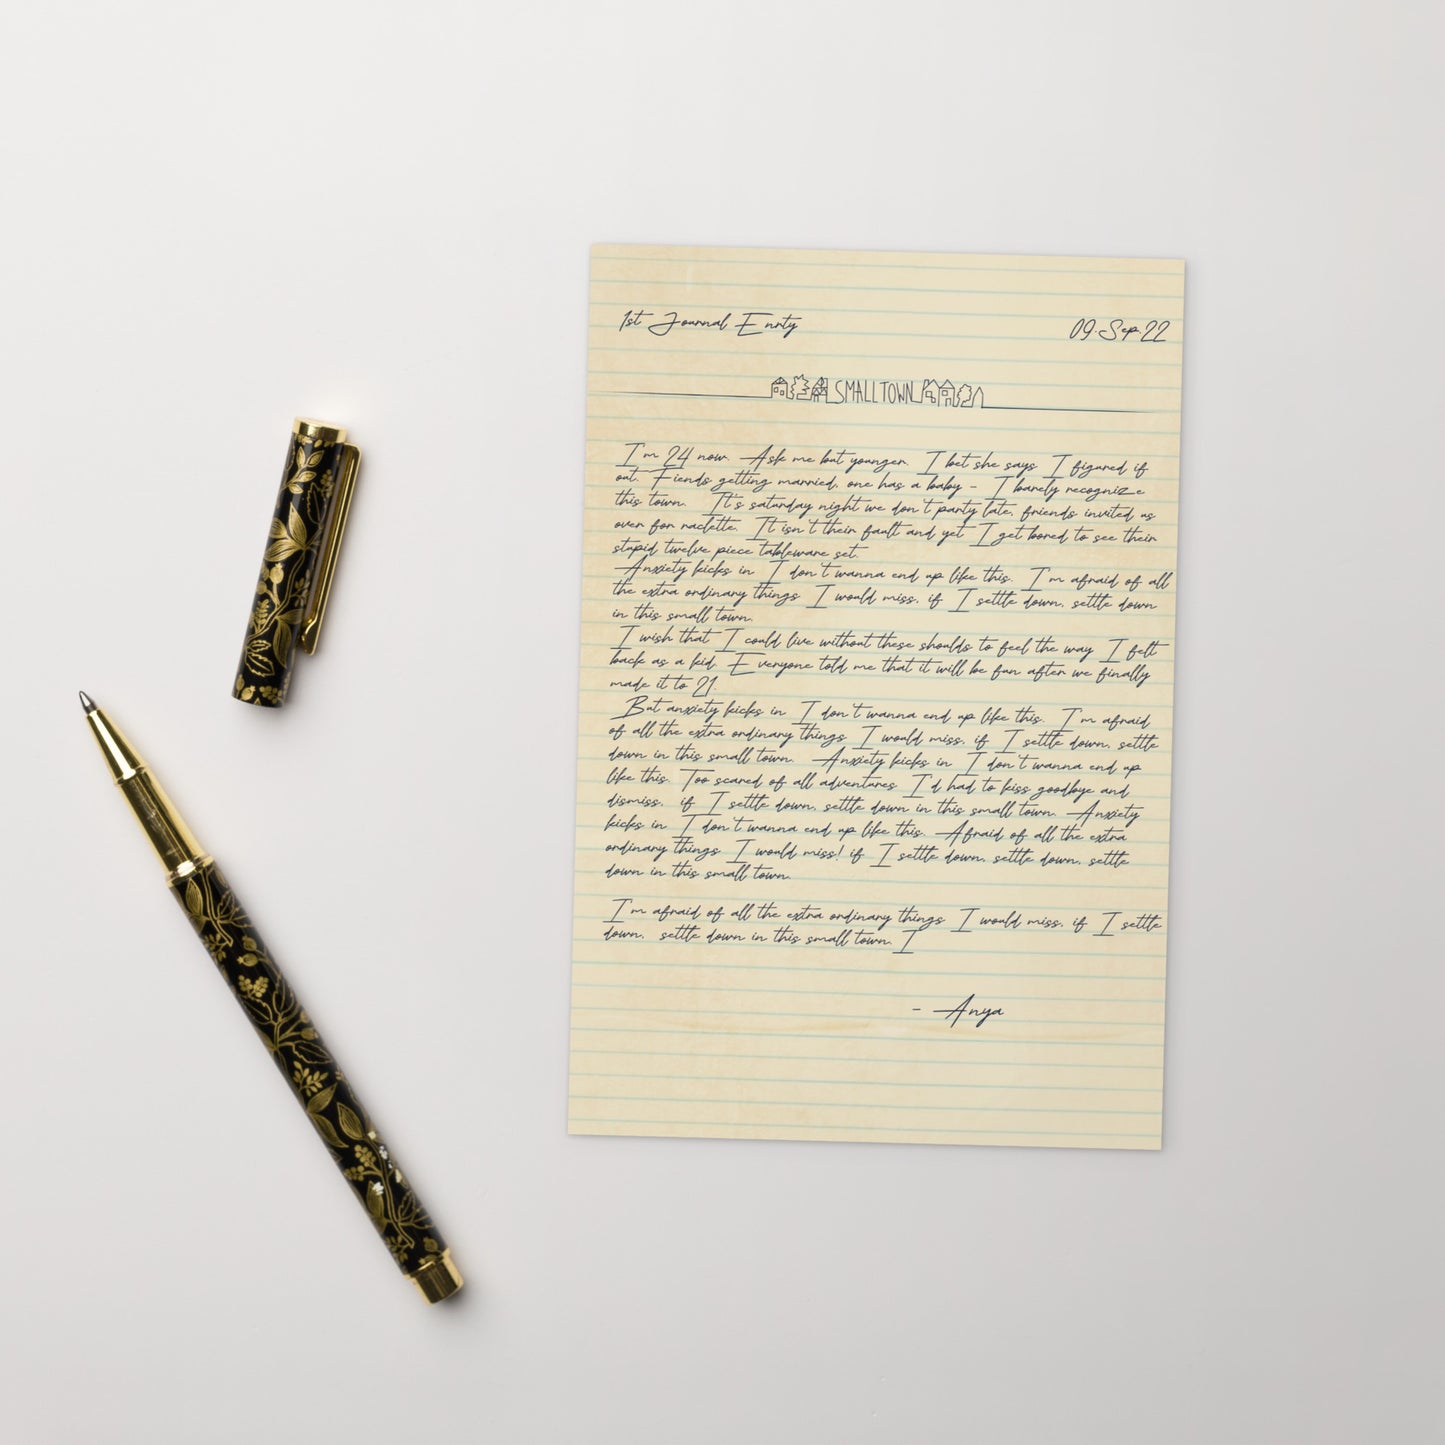 1st Journal Enrty
09.Sep.22
SMALLTOWN
I'm 24 now. Ask me but younger. I bet she says I figured if
out. Fiends getting married, one has a baby - I barely recognize
this town. It's saturday night we don't party late, friends invited us
over for raclette. It isn't their fault and yet I get bored to see their
stupid twelve piece tableware set.
Anxiety kicks in I don't wanna end up like this. I'm afraid of all
the extra ordinary things I would miss, if I settle down, settle down
in this small town.
I wish that I could live without these shoulds to feel the way I felt
back as a kid. Everyone told me that it will be fun after we finally
made it to 21.
But anxiety kicks in I don't wanna end up like this. I'm afraid
of all the extra ordinary things I would miss, if I settle down, settle
down in this small town. Anxiety kicks in I don't wanna end up
like this. Too scared of all adventures I'd had to kiss goodbye and
dismiss, if I settle down, settle down in this small town. Anxiety
kicks in I don't wanna end up like this. Afraid of all the extra
ordinary things I would miss! if I settle down, settle down, settle
down in this small town.
I'm afraid of all the extra ordinary things I would miss, if I settle
down, settle down in this small town. I
- Anya